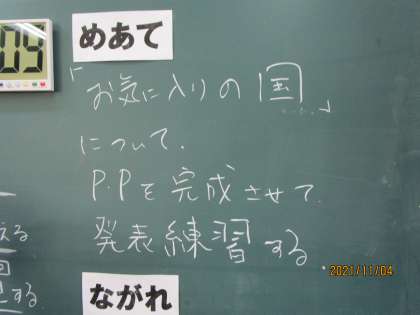 めあて
「お気に入りの国」
について.
P.Pを完成させて
発表練習する.
ながれ
2021/11/04
える
する.